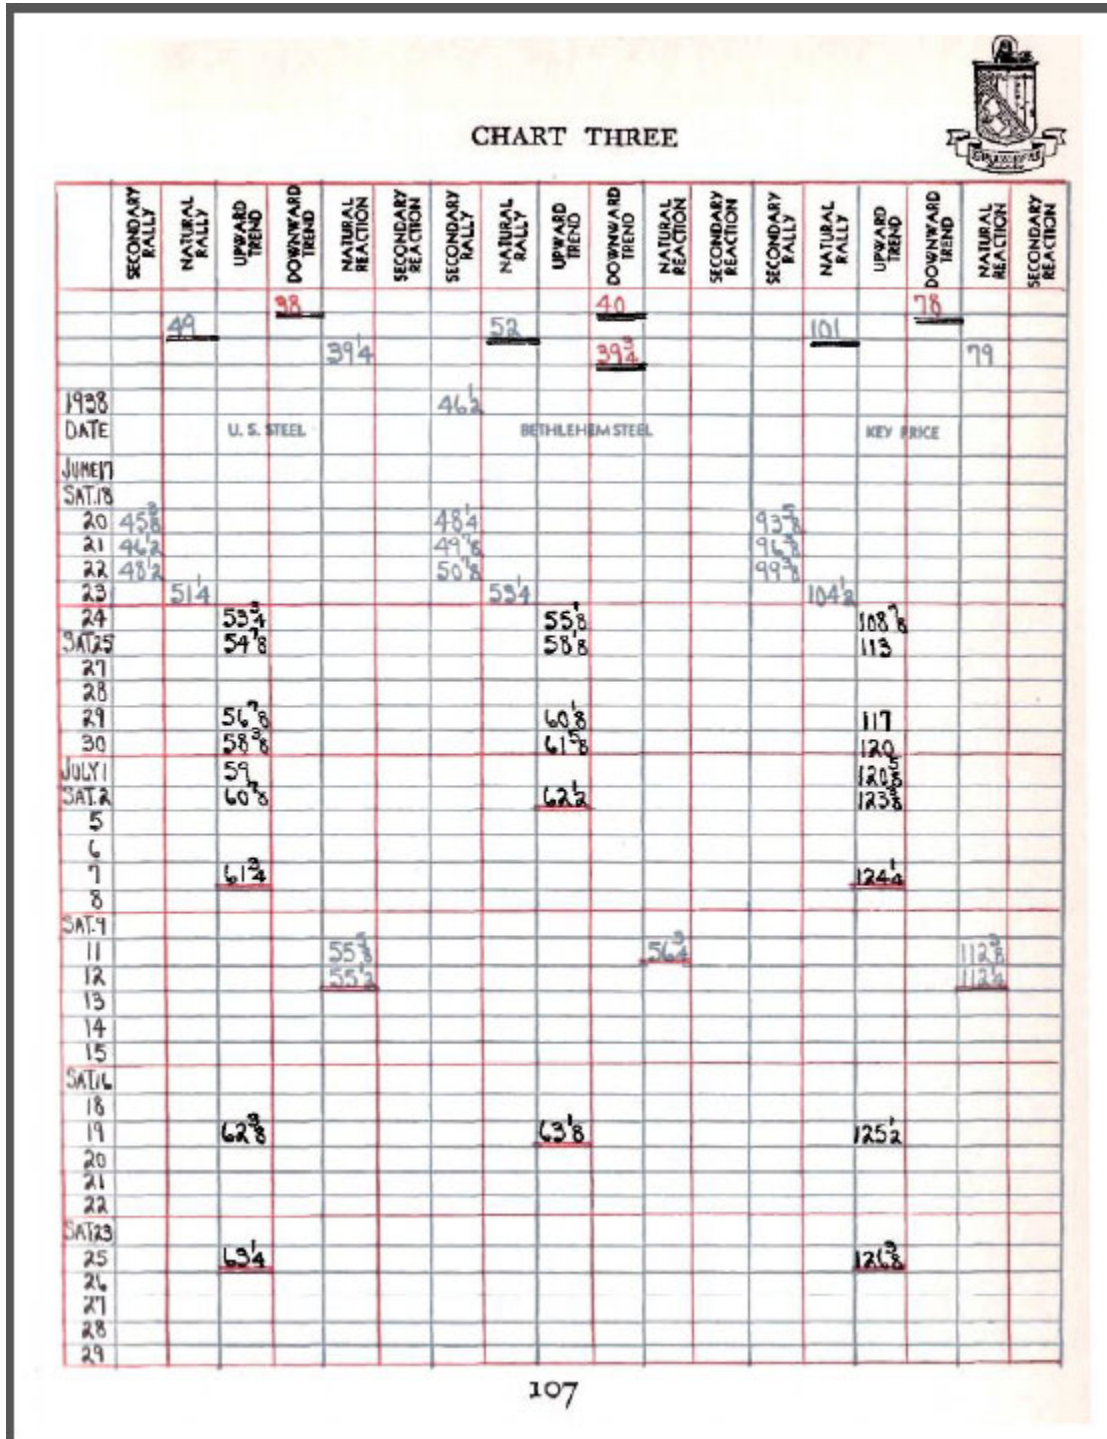 CHART THREE
SECONDARY RALLY NATURAL RALLY UPWARD TREND DOWNWARD TREND NATURAL REACTION SECONDARY REACTION SECONDARY RALLY NATURAL RALLY UPWARD TREND DOWNWARD TREND NATURAL REACTION SECONDARY REACTION SECONDARY RALLY NATURAL RALLY UPWARD TREND DOWNWARD TREND NATURAL REACTION SECONDARY REACTION
38 40 78
49 52 101
39 1/4 39 3/4 79
1938 46 1/2
DATE U. S. STEEL BETHLEHEM STEEL KEY PRICE
JUNE 17
SAT. 18
20 45 3/8 48 1/4 93 5/8
21 46 1/2 49 7/8 96 3/8
22 48 1/2 50 7/8 99 3/8
23 51 1/4 53 1/4 104 1/2
24 53 3/4 55 1/8 108 7/8
SAT 25 54 7/8 58 1/8 113
27
28
29 56 7/8 60 1/8 117
30 58 3/8 61 5/8 120
JULY 1 59 120 5/8
SAT. 2 60 7/8 62 1/2 123 3/8
5
6
7 61 3/4 124 1/4
8
SAT. 9
11 55 5/8 56 3/4 112 3/8
12 55 1/2 112 1/4
13
14
15
SAT 16
18
19 62 3/8 63 1/8 125 1/2
20
21
22
SAT 23
25 63 1/4 126 3/8
26
27
28
29
107